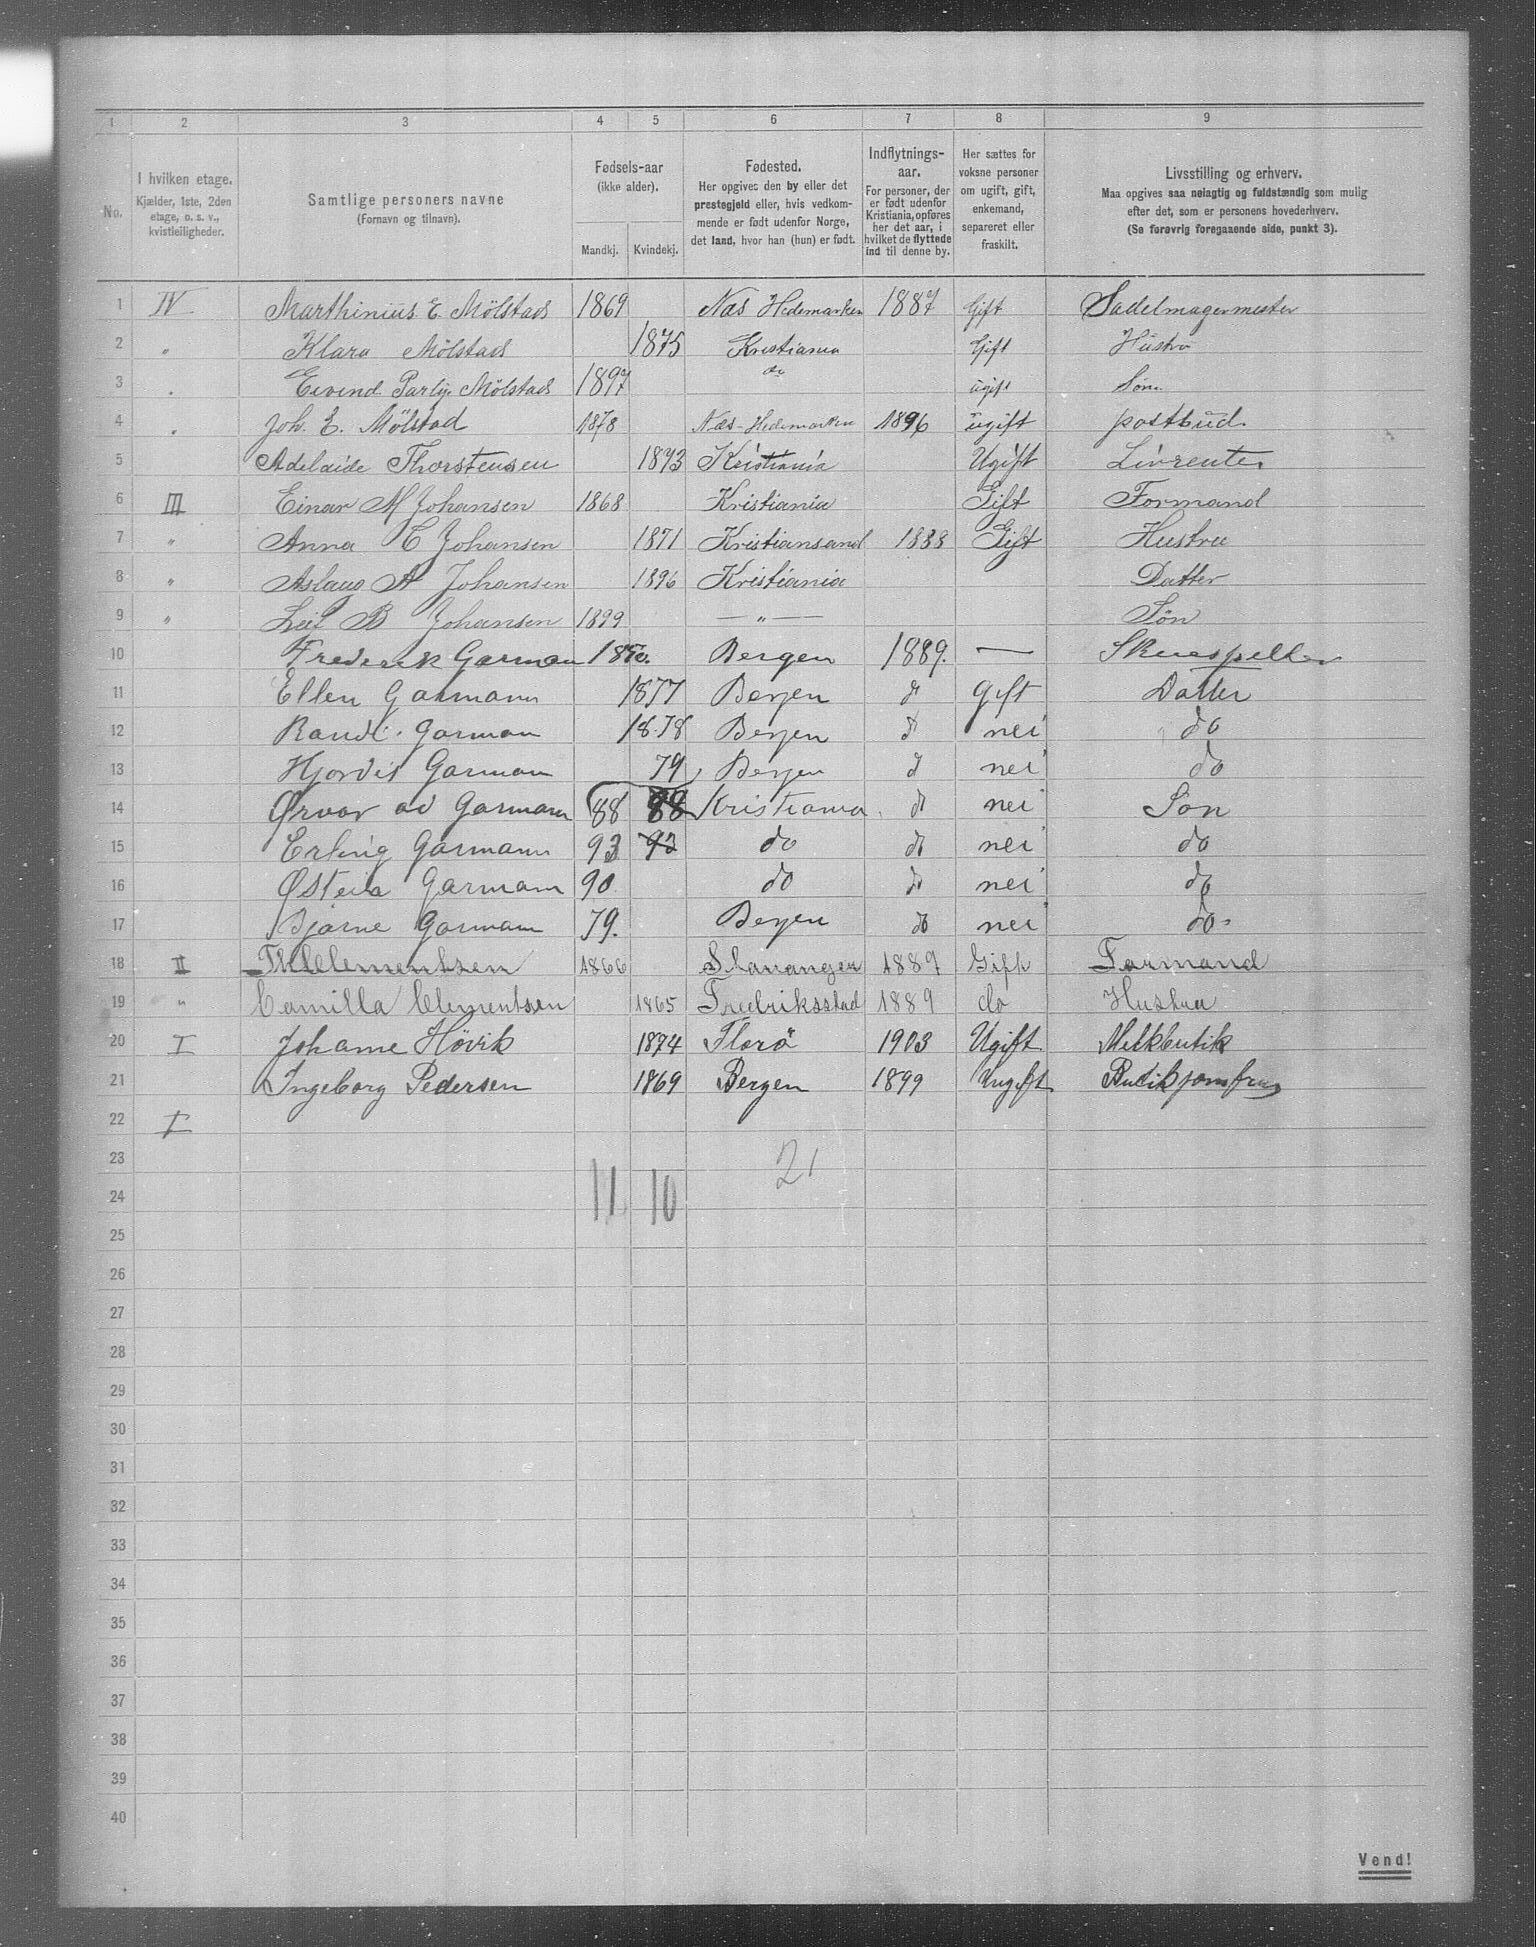 1 2 3 4 5 6 7 8 9
No.
I hvilken etage.
Kjælder, 1ste, 2den
etage, o. s. v.,
kvistleiligheder.
Samtlige personers navne
(Fornavn og tilnavn).
Fødsels-aar
(ikke alder).
Mandkj. Kvindekj.
Fødested.
Her opgives den by eller det
prestegjeld eller, hvis vedkom-
mende er født udenfor Norge,
det land, hvor han (hun) er født.
Indflytnings-
aar.
For personer, der
er født udenfor
Kristiania, opføres
her det aar, i
hvilket de flyttede
ind til denne by.
Her sættes for
voksne personer
om ugift, gift,
enkemand,
separeret eller
fraskilt.
Livsstilling og erhverv.
Maa opgives saa nøiagtig og fuldstændig som mulig
efter det, som er personens hovederhverv.
(Se forøvrig foregaaende side, punkt 3).
1 IV Marthinius E. Mölstad 1869 Næs Hedemarken 1887 Gift Sadelmagermester
2 " Klara Mölstad 1875 Kristiania Gift Hustro
3 " Eivind Mölstad 1897 do ugift Søn
4 " Joh. E. Mölstad 1878 Næs-Hedemarken 1896 ugift postbud.
5 Adelaide Thorstensen 1873 Kristiania Ugift Livrente
6 III Einar M Johansen 1868 Kristiania Gift Formand
7 " Anna C Johansen 1871 Kristiansand 1888 Gift Hustru
8 " Aslaug A Johansen 1896 Kristiania Datter
9 " Leif B Johansen 1899 — " — Søn
10 Frederik Garman 1850. Bergen 1889. — Skuespiller
11 Ellen Garmann 1877 Bergen do Gift Datter
12 Randi Garman 1878 Bergen do nei do
13 Hjordis Garman 79 Bergen do nei do
14 Ørvar od Garmann 88 88 Kristiania do nei Søn
15 Erling Garmann 93 93 do do nei do
16 Østein Garmann 90 do do nei do
17 Bjarne Garmann 79. Bergen do nei do
18 II Clementsen 1866 Stavanger 1889 Gift Formand
19 " Camilla Clementsen 1865 Fredriksstad 1889 do Hustru
20 I Johanne Høvik 1874 Florö 1903 Ugift Melkbutik
21 Ingeborg Pedersen 1869 Bergen 1899 Ungift Butikjomfru
22 I
23 21
24 11 10
25
26
27
28
29
30
31
32
33
34
35
36
37
38
39
40
Vend!